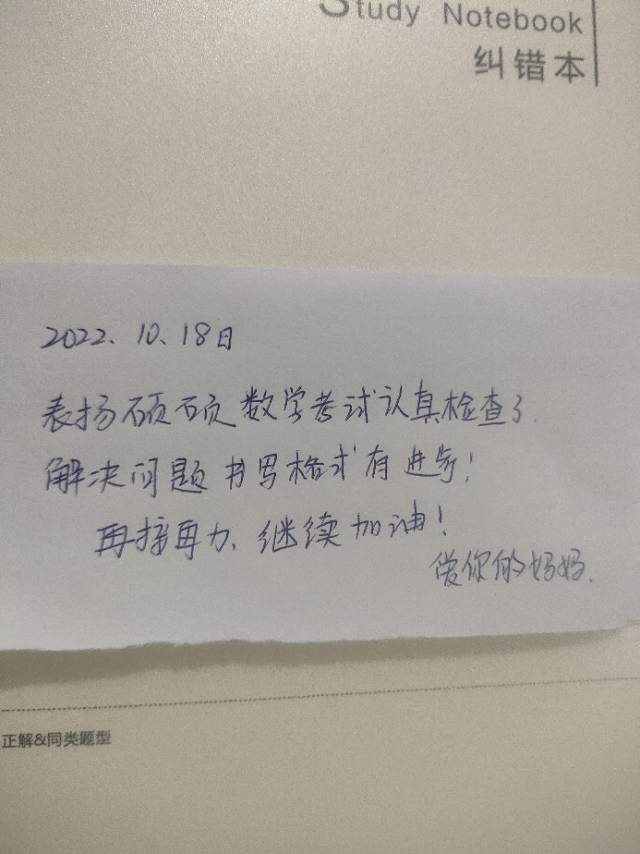 Study Notebook
纠错本
2022、10、18日
表扬硕硕数学考试认真检查了.
解决问题书写格式有进步!
再接再力、继续加油!
爱你的妈妈.
正解&同类题型